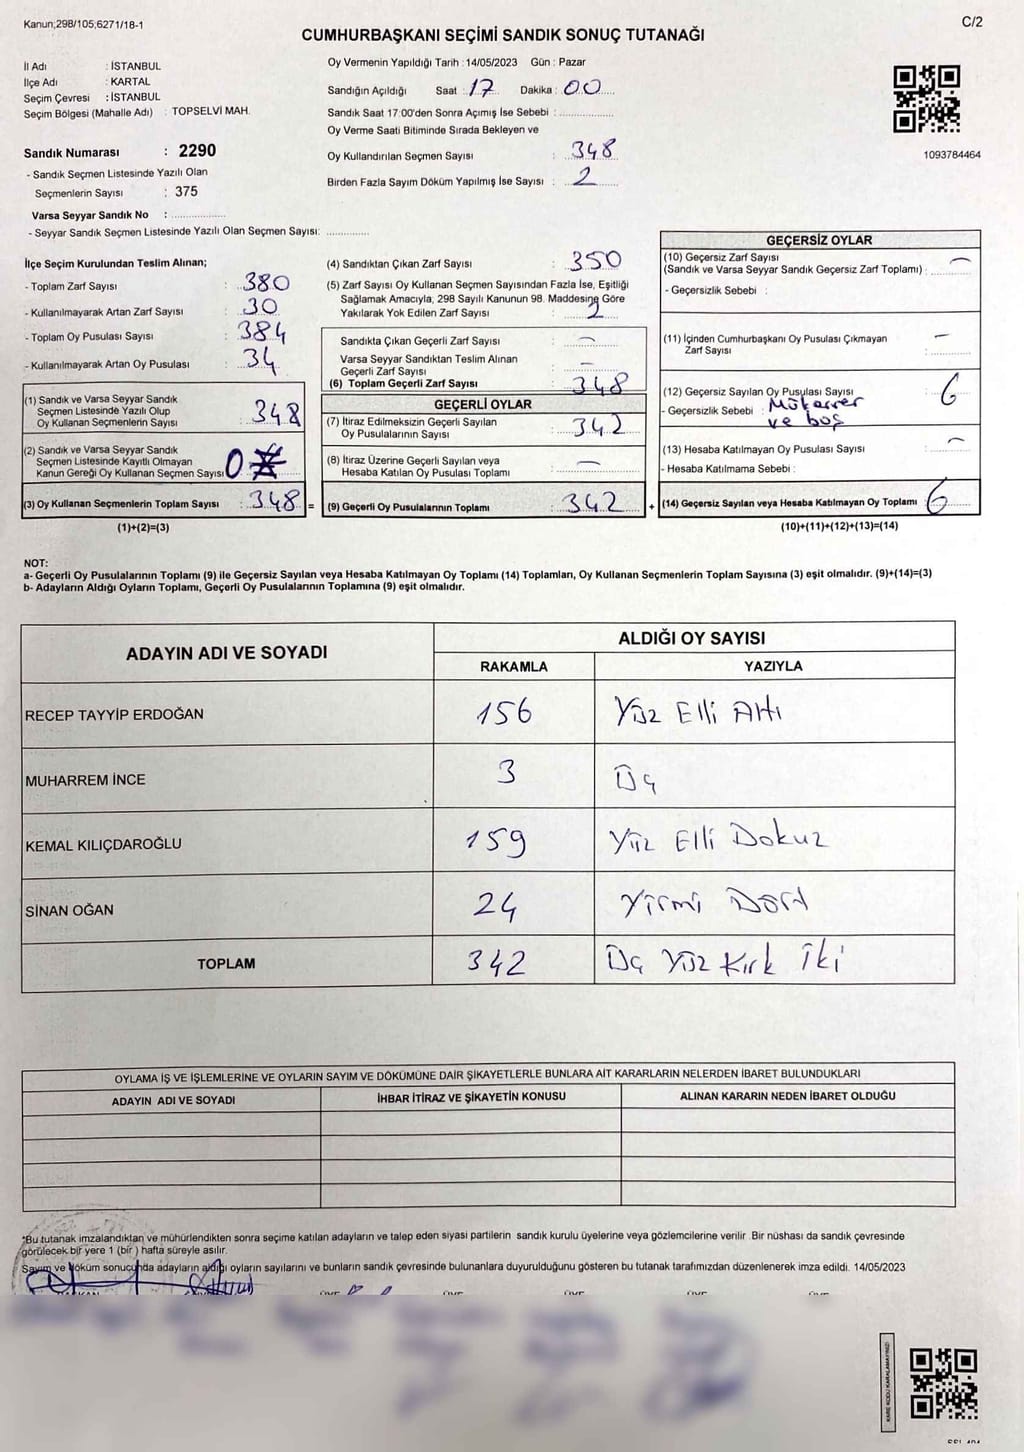 Kanun;298/105;6271/18-1
C/2
CUMHURBAŞKANI SEÇİMİ SANDIK SONUÇ TUTANAĞI
İl Adı : İSTANBUL
İlçe Adı : KARTAL
Seçim Çevresi : İSTANBUL
Seçim Bölgesi (Mahalle Adı) : TOPSELVİ MAH.
Sandık Numarası : 2290
- Sandık Seçmen Listesinde Yazılı Olan
Seçmenlerin Sayısı : 375
Varsa Seyyar Sandık No : ................
- Seyyar Sandık Seçmen Listesinde Yazılı Olan Seçmen Sayısı: ............
Oy Vermenin Yapıldığı Tarih : 14/05/2023 Gün : Pazar
Sandığın Açıldığı Saat : 17 Dakika : 00
Sandık Saat 17:00'den Sonra Açımış İse Sebebi : ................
Oy Verme Saati Bitiminde Sırada Bekleyen ve
Oy Kullandırılan Seçmen Sayısı : 348
Birden Fazla Sayım Döküm Yapılmış İse Sayısı : 2
1093784464
İlçe Seçim Kurulundan Teslim Alınan;
- Toplam Zarf Sayısı : 380
- Kullanılmayarak Artan Zarf Sayısı : 30
- Toplam Oy Pusulası Sayısı : 384
- Kullanılmayarak Artan Oy Pusulası : 34
(1) Sandık ve Varsa Seyyar Sandık
Seçmen Listesinde Yazılı Olup
Oy Kullanan Seçmenlerin Sayısı : 348
(2) Sandık ve Varsa Seyyar Sandık
Seçmen Listesinde Kayıtlı Olmayan
Kanun Gereği Oy Kullanan Seçmen Sayısı 0
(3) Oy Kullanan Seçmenlerin Toplam Sayısı : 348 =
(1)+(2)=(3)
(4) Sandıktan Çıkan Zarf Sayısı : 350
(5) Zarf Sayısı Oy Kullanan Seçmen Sayısından Fazla İse, Eşitliği
Sağlamak Amacıyla, 298 Sayılı Kanunun 98. Maddesine Göre
Yakılarak Yok Edilen Zarf Sayısı : 2
Sandıkta Çıkan Geçerli Zarf Sayısı : —
Varsa Seyyar Sandıktan Teslim Alınan
Geçerli Zarf Sayısı : —
(6) Toplam Geçerli Zarf Sayısı : 348
GEÇERLİ OYLAR
(7) İtiraz Edilmeksizin Geçerli Sayılan
Oy Pusulalarının Sayısı : 342
(8) İtiraz Üzerine Geçerli Sayılan veya
Hesaba Katılan Oy Pusulası Toplamı : —
(9) Geçerli Oy Pusulalarının Toplamı : 342 +
GEÇERSİZ OYLAR
(10) Geçersiz Zarf Sayısı
(Sandık ve Varsa Seyyar Sandık Geçersiz Zarf Toplamı) : —
- Geçersizlik Sebebi :
(11) İçinden Cumhurbaşkanı Oy Pusulası Çıkmayan
Zarf Sayısı : —
(12) Geçersiz Sayılan Oy Pusulası Sayısı : 6
- Geçersizlik Sebebi : Mükerrer
ve boş
(13) Hesaba Katılmayan Oy Pusulası Sayısı : —
- Hesaba Katılmama Sebebi :
(14) Geçersiz Sayılan veya Hesaba Katılmayan Oy Toplamı : 6
(10)+(11)+(12)+(13)=(14)
NOT:
a- Geçerli Oy Pusulalarının Toplamı (9) ile Geçersiz Sayılan veya Hesaba Katılmayan Oy Toplamı (14) Toplamları, Oy Kullanan Seçmenlerin Toplam Sayısına (3) eşit olmalıdır. (9)+(14)=(3)
b- Adayların Aldığı Oyların Toplamı, Geçerli Oy Pusulalarının Toplamına (9) eşit olmalıdır.
ADAYIN ADI VE SOYADI ALDIĞI OY SAYISI
RAKAMLA YAZIYLA
RECEP TAYYİP ERDOĞAN 156 Yüz Elli Altı
MUHARREM İNCE 3 Üç
KEMAL KILIÇDAROĞLU 159 Yüz Elli Dokuz
SİNAN OĞAN 24 Yirmi Dört
TOPLAM 342 Üç Yüz Kırk İki
OYLAMA İŞ VE İŞLEMLERİNE VE OYLARIN SAYIM VE DÖKÜMÜNE DAİR ŞİKAYETLERLE BUNLARA AİT KARARLARIN NELERDEN İBARET BULUNDUKLARI
ADAYIN ADI VE SOYADI İHBAR İTİRAZ VE ŞİKAYETİN KONUSU ALINAN KARARIN NEDEN İBARET OLDUĞU
*Bu tutanak imzalandıktan ve mühürlendikten sonra seçime katılan adayların ve talep eden siyasi partilerin sandık kurulu üyelerine veya gözlemcilerine verilir. Bir nüshası da sandık çevresinde
görülecek bir yere 1 (bir) hafta süreyle asılır.
Sayım ve döküm sonucunda adayların aldığı oyların sayılarını ve bunların sandık çevresinde bulunanlara duyurulduğunu gösteren bu tutanak tarafımızdan düzenlenerek imza edildi. 14/05/2023
KARE KODU KARALAMAYINIZ!